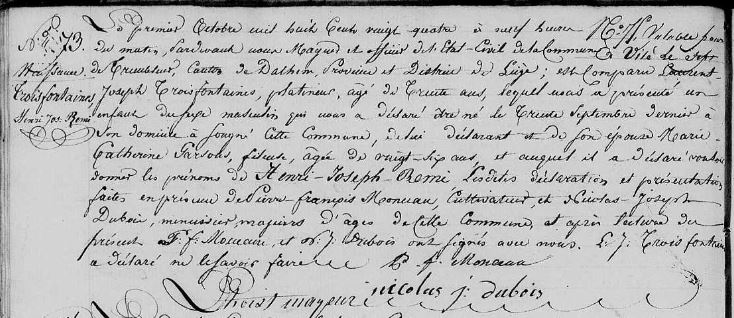 Le premier Octobre mil huit Cent vingt quatre à neuf heures
N° 73.
du matin, Pardevant nous Mayeur et officier de l'Etat-Civil de la Commune
Naissance de Trembleur, Canton de Dalhem, Province et District de Liège; est Comparu Laurent
Troisfontaines Joseph Troisfontaines, platineur, agé de Trente ans, lequel nous a présenté un
Henri Jos. Remi enfant du sexe masculin qui nous a déclaré être né le Trente Septembre dernier à
Son domicile à Cette Commune, de lui déclarant et de son épouse Marie
Catherine fileuse, âgée de vingt-six ans, et auquel il a déclaré vouloir
donner les prénoms de Henri-Joseph Remi Lesdites déclaration et présentation
faites en présence de Pierre françois Monceau, Cultivateur, et Nicolas Joseph
Dubois, menuisier, majeurs d'âges de Cette Commune, et après lecture du
présent P. f. Monceau, et N. J. Dubois ont signés avec nous. L. J. Troisfontaines
a déclaré ne le savoir faire
P f Monceau
nicolas j: dubois
mayeur